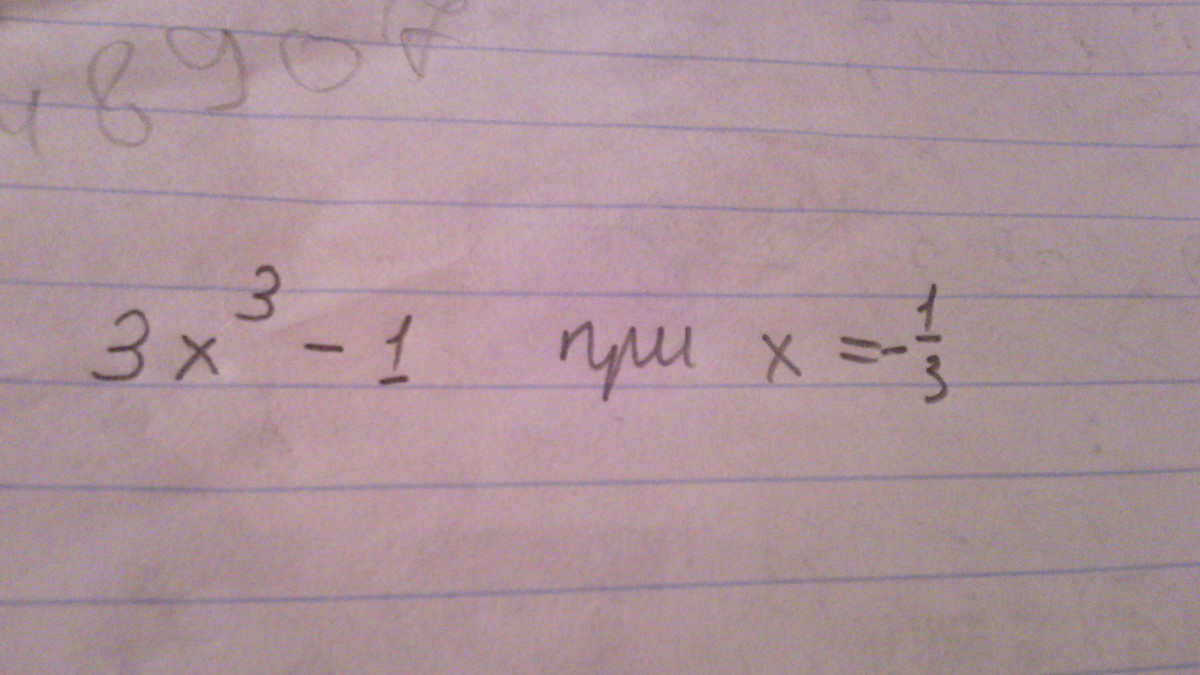 48907
3x³ - 1 при x = -1/3